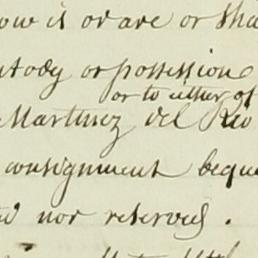 now is or are or sha
stody or possession
or to either of
Martinez del Rio
consignment beque
nor reserved.